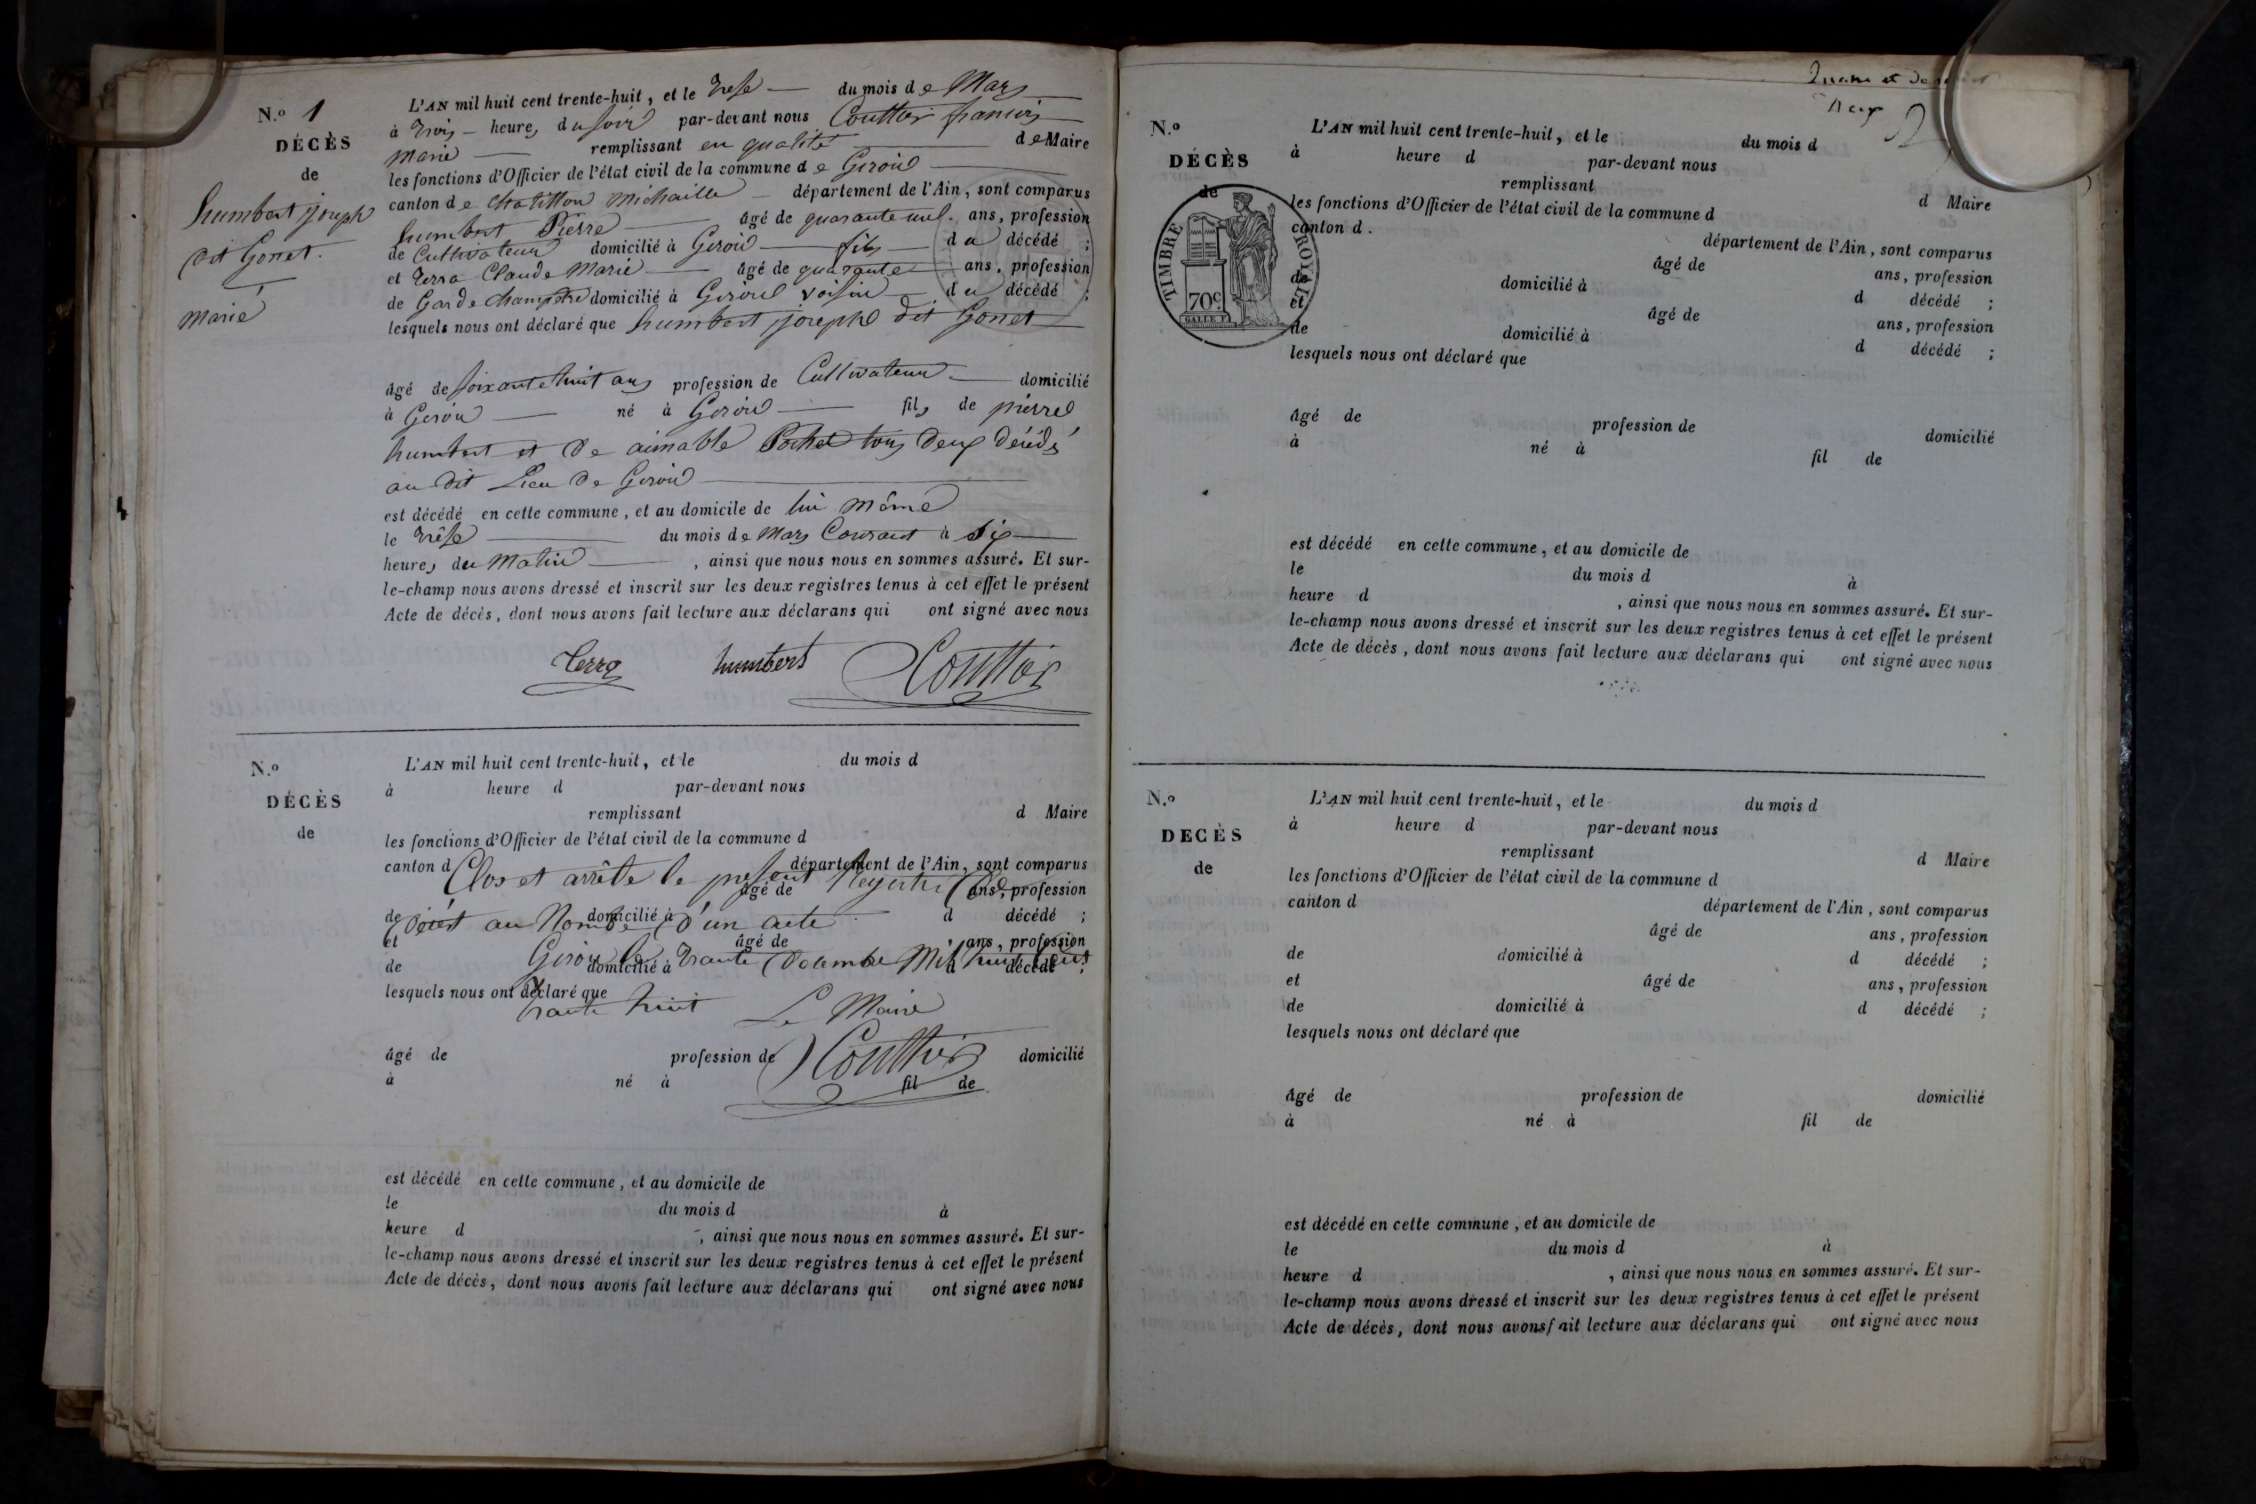 N.º 1
DÉCÈS
de
humbert joseph
dit Gonet.
marié
L'AN mil huit cent trente-huit, et le trese du mois de Mars
à trois heures du soir par-devant nous Couttier francois
marie remplissant en qualité de Maire
les fonctions d'Officier de l'état civil de la commune de Giron
canton de Chatillon Michaille département de l'Ain, sont comparus
humbert Pierre âgé de quarante ans, profession
de Cultivateur domicilié à Giron fils du décédé ;
et Terra Claude Marie âgé de quarante ans, profession
de Garde champetre domicilié à Giron voisin du décédé ;
lesquels nous ont déclaré que humbert joseph dit Gonet
âgé de soixante huit ans profession de Cultivateur domicilié
à Giron né à Giron fils de pierre
humbert et de aimable Pochet tous deux décédés
au dit Lieu de Giron
est décédé en cette commune, et au domicile de lui même
le trese du mois de Mars Courant à six
heures du Matin , ainsi que nous nous en sommes assuré. Et sur-
le-champ nous avons dressé et inscrit sur les deux registres tenus à cet effet le présent
Acte de décès, dont nous avons fait lecture aux déclarans qui ont signé avec nous
Terra humbert Couttier
N.º
DÉCÈS
de
L'AN mil huit cent trente-huit, et le du mois d
à heure d par-devant nous
remplissant d Maire
les fonctions d'Officier de l'état civil de la commune d
canton d département de l'Ain, sont comparus
Clos et arrête le présent Registre de
âgé de ans, profession
de domicilié à d décédé ;
décès au Nombre d'un acte
et âgé de ans, profession
Giron le trante décembre Mil huit Cent
de domicilié à d décédé ;
lesquels nous ont déclaré que
trante huit Le Maire
Couttier
âgé de profession de domicilié
à né à fil de
est décédé en cette commune, et au domicile de
le du mois d à
heure d , ainsi que nous nous en sommes assuré. Et sur-
le-champ nous avons dressé et inscrit sur les deux registres tenus à cet effet le présent
Acte de décès, dont nous avons fait lecture aux déclarans qui ont signé avec nous
deux 2
N.º
DÉCÈS
de
TIMBRE ROYAL
70c
GALLE F.
L'AN mil huit cent trente-huit, et le du mois d
à heure d par-devant nous
remplissant d Maire
les fonctions d'Officier de l'état civil de la commune d
canton d. département de l'Ain, sont comparus
âgé de ans, profession
de domicilié à d décédé ;
et âgé de ans, profession
de domicilié à d décédé ;
lesquels nous ont déclaré que
âgé de profession de domicilié
à né à fil de
est décédé en cette commune, et au domicile de
le du mois d à
heure d , ainsi que nous nous en sommes assuré. Et sur-
le-champ nous avons dressé et inscrit sur les deux registres tenus à cet effet le présent
Acte de décès, dont nous avons fait lecture aux déclarans qui ont signé avec nous
N.º
DECÈS
de
L'AN mil huit cent trente-huit, et le du mois d
à heure d par-devant nous
remplissant d Maire
les fonctions d'Officier de l'état civil de la commune d
canton d département de l'Ain, sont comparus
âgé de ans, profession
de domicilié à d décédé ;
et âgé de ans, profession
de domicilié à d décédé ;
lesquels nous ont déclaré que
âgé de profession de domicilié
à né à fil de
est décédé en cette commune, et au domicile de
le du mois d à
heure d , ainsi que nous nous en sommes assuré. Et sur-
le-champ nous avons dressé et inscrit sur les deux registres tenus à cet effet le présent
Acte de décès, dont nous avons fait lecture aux déclarans qui ont signé avec nous